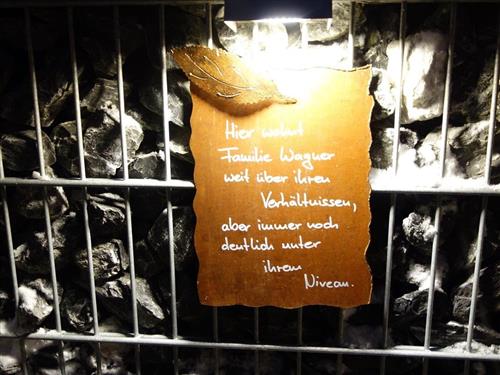 Hier wohnt
Familie Wagner
weit über ihren
Verhältnissen,
aber immer noch
deutlich unter
ihrem
Niveau.